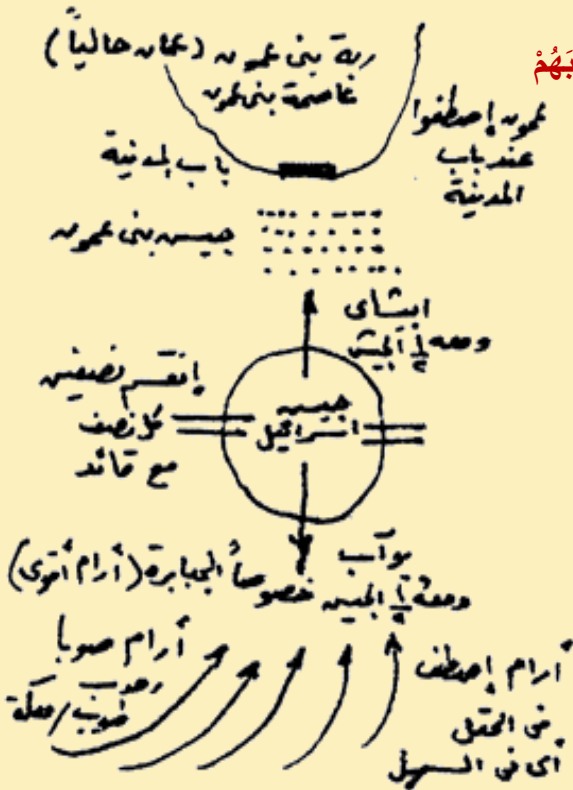 بَهُمْ
ربة بنى عمون (عمان حالياً)
عاصمة بنى عمون
عمون إصطفوا
عند باب
المدينة
باب المدينة
جيش بنى عمون
ابيشاى
ومعه ١/٢ الجيش
إنقسم نصفين
كل نصف
مع قائد
جيش
اسرائيل
يوآب
ومعه ١/٢ الجيش خصوصاً الجبابرة (أرام أقوى)
أرام صوبا
رحوب
طوب/معكة
أرام إصطف
فى الحقل
أى فى السهل